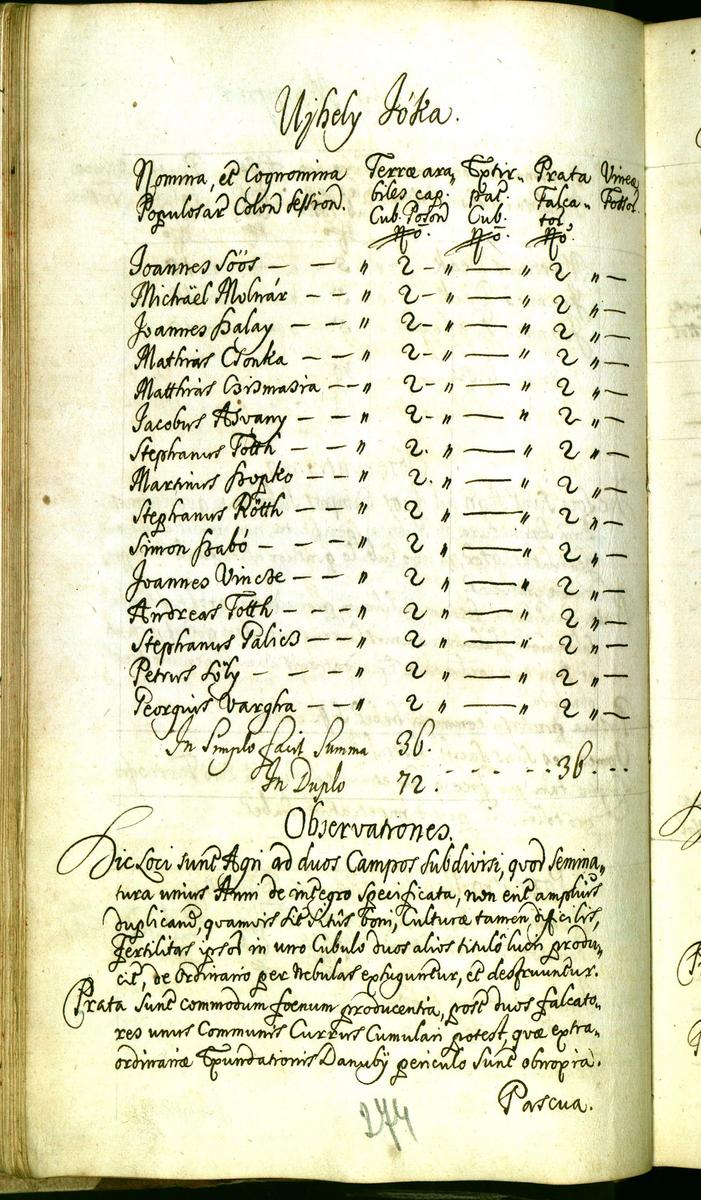 Ujhely Jóka.
Nomina, et Cognomina Terræ ara„ Extir„ Prata Vineæ
Populosar Colon Session. biles cap. pat. Falca„ Fossor.
Cub. Poson Cub. tor,
No. No. No.
Joannes Söös — — „ 2 – „ — „ 2 „ —
Michäel Molnár — — „ 2 – „ — „ 2 „ —
Joannes Halay — — „ 2 – „ — „ 2 „ —
Mathias Csonka — — „ 2 – „ — „ 2 „ —
Matthias Csismasia — — „ 2 – „ — „ 2 „ —
Jacobus Asvany — — „ 2 – „ — „ 2 „ —
Stephanus Totth — — „ 2. „ — „ 2 „ —
Martinus Hopko — — „ 2. „ — „ 2 „ —
Stephanus Rötth — — „ 2 „ — „ 2 „ —
Simon Szabó — — „ 2 „ — „ 2 „ —
Joannes Vincze — — „ 2 „ — „ 2 „ —
Andreas Totth — — „ 2 „ — „ 2 „ —
Stephanus Palics — — „ 2 „ — „ 2 „ —
Petrus Sóly — — — „ 2 „ — „ 2 „ —
Georgius Vargha — — „ 2 „ — „ 2 „ —
In Simplo facit Summa 36.
In Duplo 72. - - - - - 36. - -
Observationes.
Hic Loci sunt Agri ad duos Campos subdivisi, quod semina„
tura unius Anni de integro specificata, non erit amplius
duplicand, quamvis sit situs boni, Culturæ tamen difficilis,
Fertilitas ipsor in uno Cubulo duos alios titulo lucri produ„
cit, de Ordinario per Nebulas exsuguntur, et destruuntur.
Prata sunt commodum foenum producentia, post duos falcato„
res unus Communis Currus Cumulari potest, quæ extra„
ordinariæ Exundationis Danubÿ periculo sunt obnoxia.
Pascua.
274